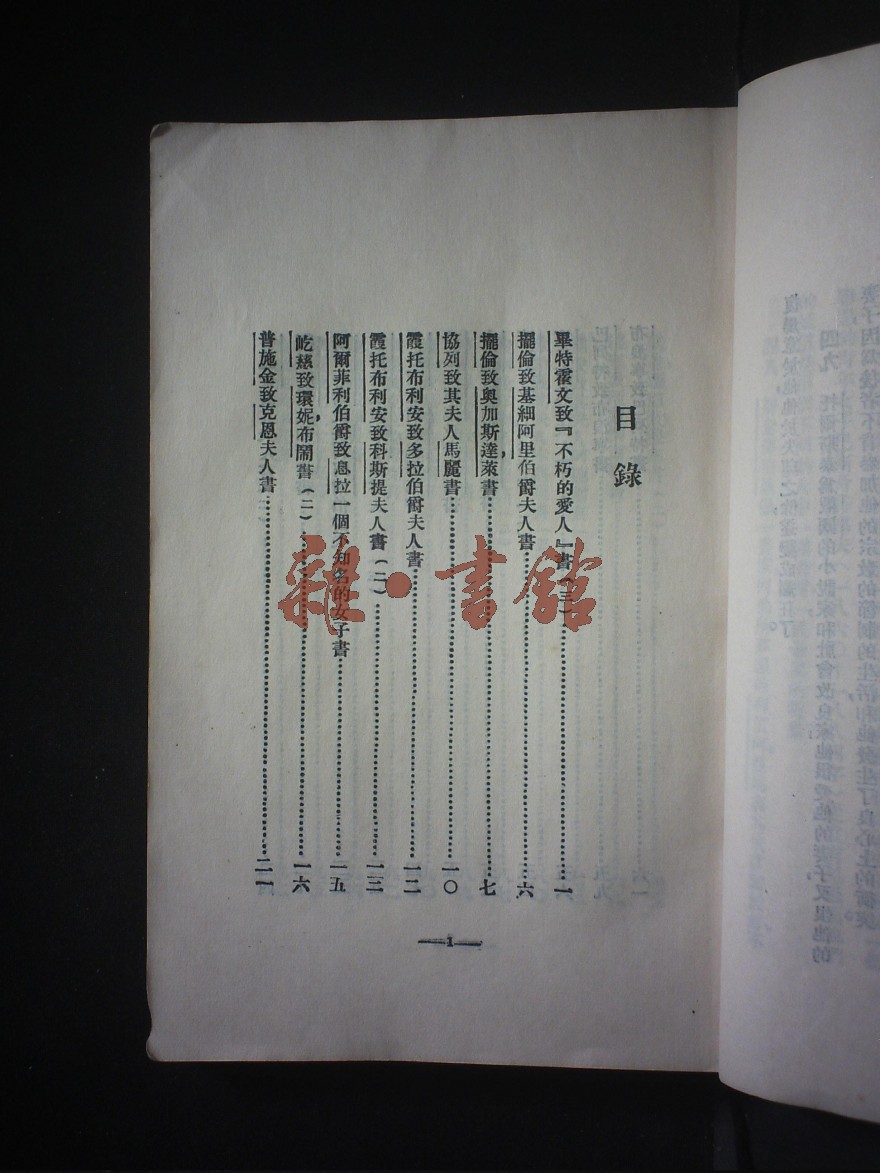 目錄
畢特霍文致『不朽的愛人』書（三）⋯⋯一
擺倫致基細阿里伯爵夫人書⋯⋯六
擺倫致奧加斯達萊書⋯⋯七
協列致其夫人馬麗書⋯⋯一〇
霞托布利安致多拉伯爵夫人書⋯⋯一二
霞托布利安致科斯提夫人書（二）⋯⋯一三
阿爾菲利伯爵致息拉一個不知名的女子書⋯⋯一五
屹慈致環妮布鬧書（二）⋯⋯一六
普施金致克恩夫人書⋯⋯二一
—1—
雜·書館